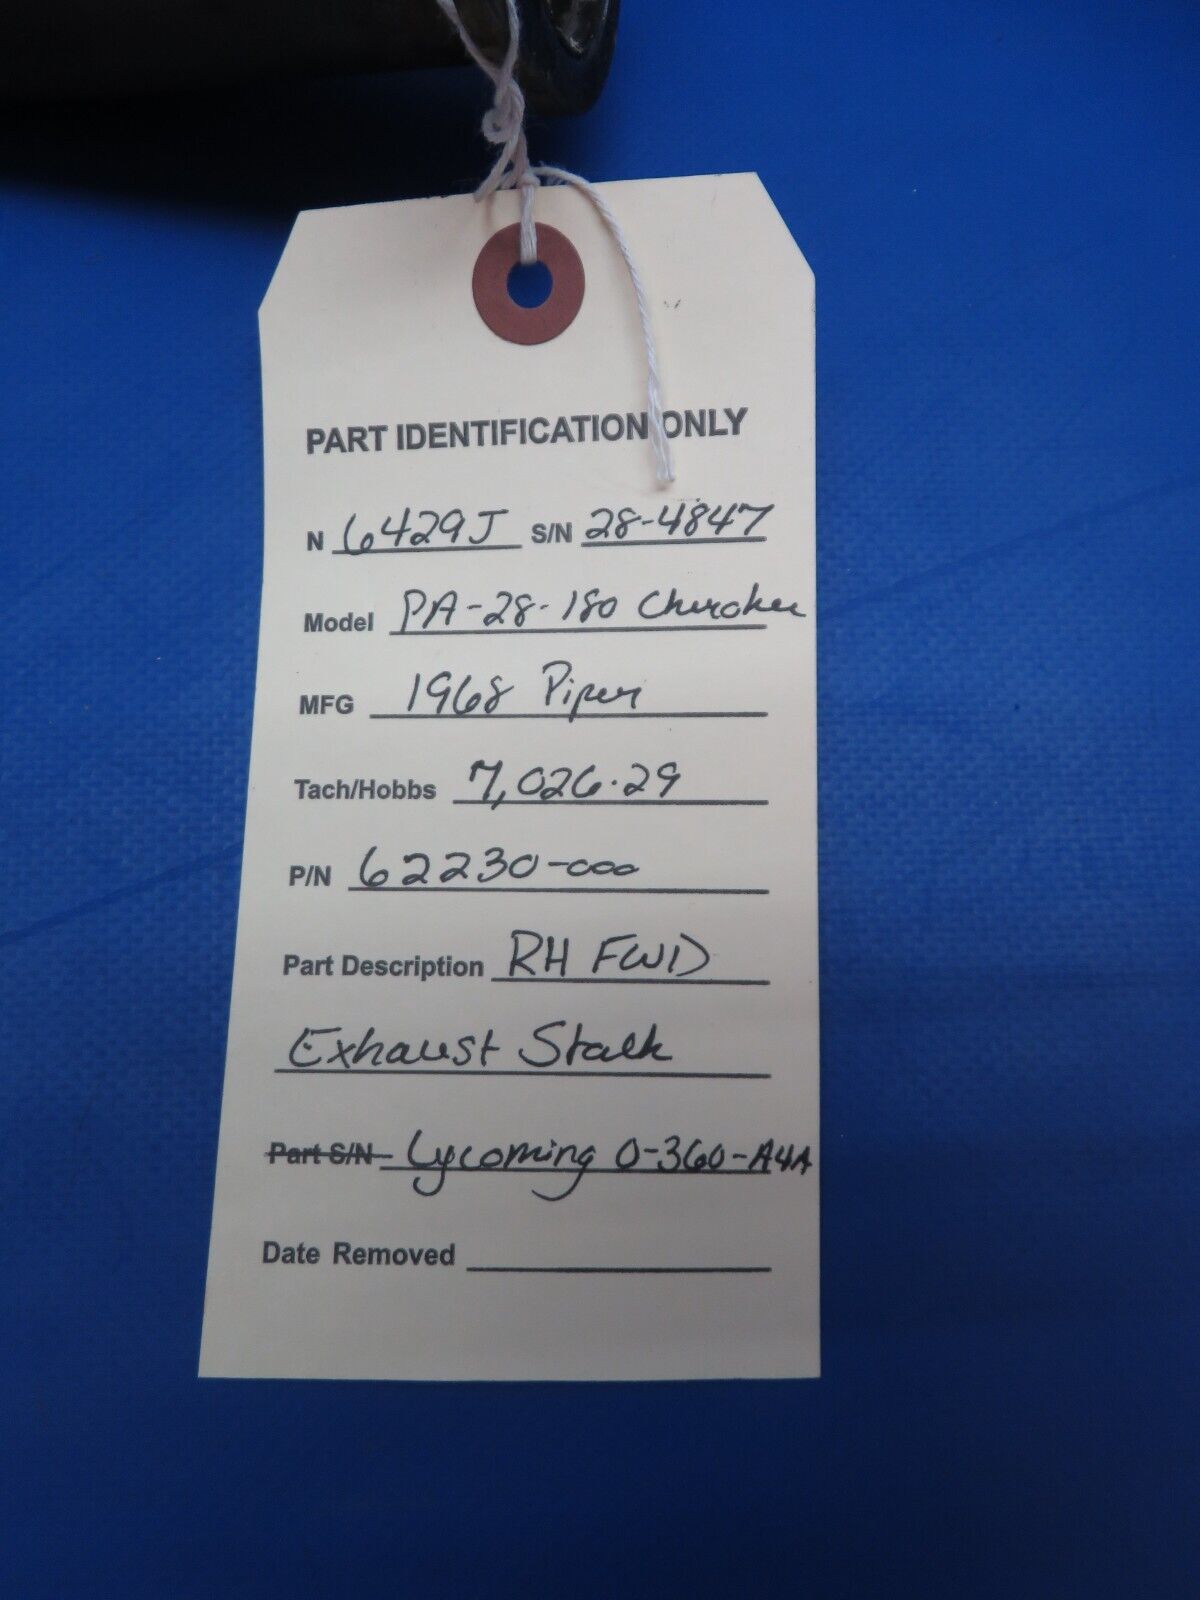 PART IDENTIFICATION ONLY
N 6429J S/N 28-4847
Model PA-28-180 Cherokee
MFG 1968 Piper
Tach/Hobbs 7,026.29
P/N 62230-000
Part Description RH FWD
Exhaust Stalk
Part S/N Lycoming O-360-A4A
Date Removed